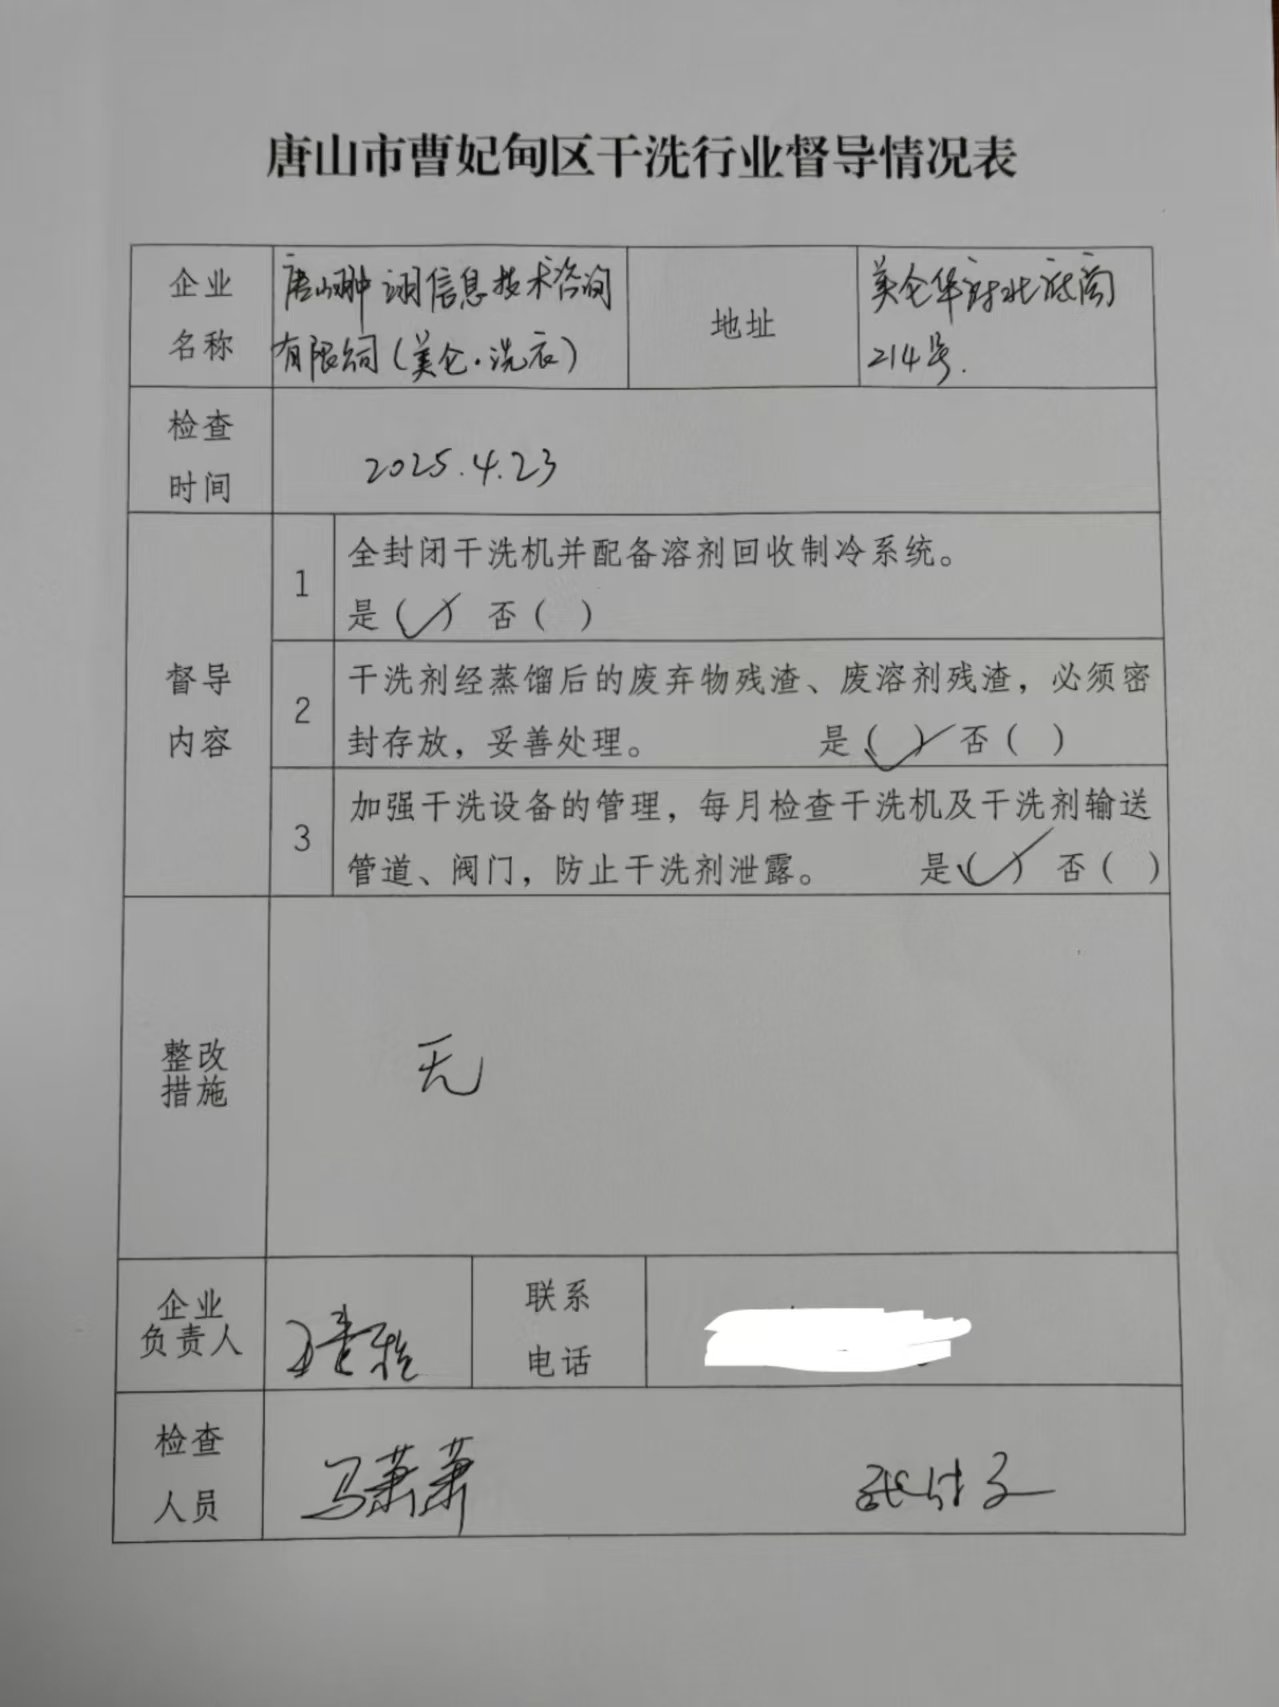 唐山市曹妃甸区干洗行业督导情况表
企业
名称
唐山翀翊信息技术咨询
有限公司（美仑·洗衣）
地址
美仑华府北底商
214号.
检查
时间
2025.4.23
督导
内容
1
全封闭干洗机并配备溶剂回收制冷系统。
是（✓）否（ ）
2
干洗剂经蒸馏后的废弃物残渣、废溶剂残渣，必须密
封存放，妥善处理。 是（✓）否（ ）
3
加强干洗设备的管理，每月检查干洗机及干洗剂输送
管道、阀门，防止干洗剂泄露。 是（✓）否（ ）
整改
措施
无
企业
负责人
联系
电话
检查
人员
马萧萧